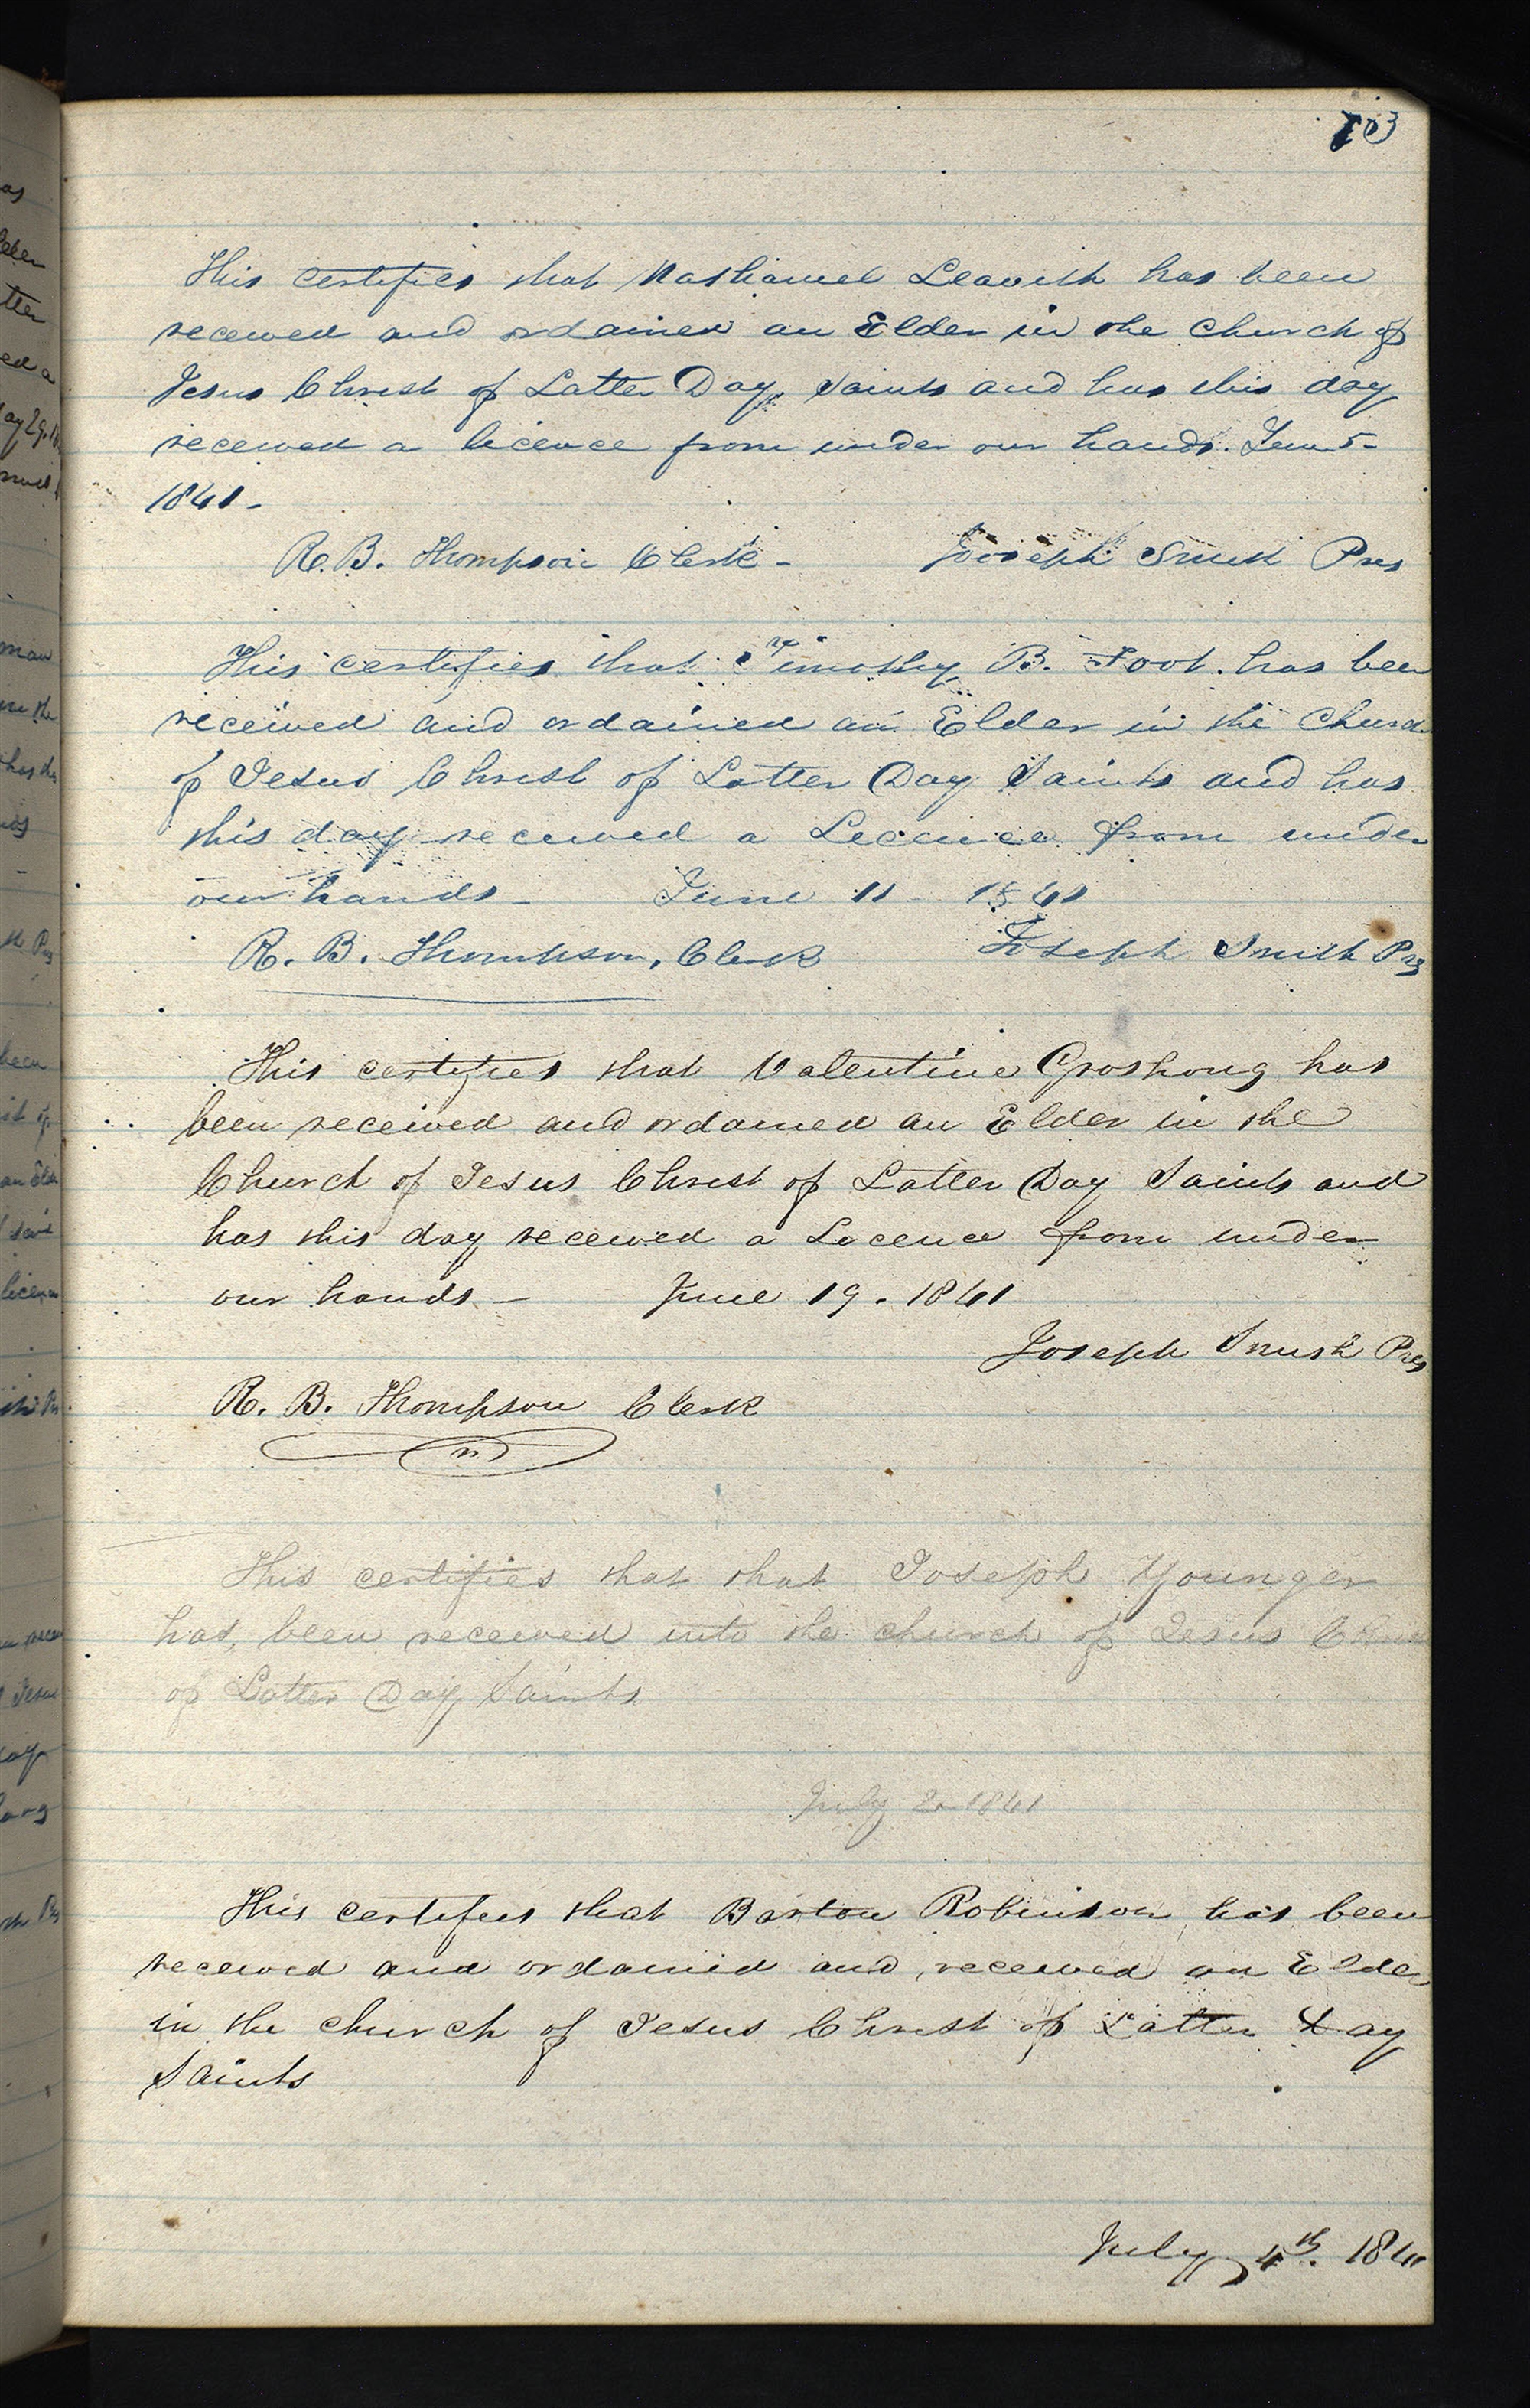 103
This certifies that Nathaniel Leavitt has been
received and ordained an Elder in the Church of
Jesus Christ of Latter Day Saints and has this day
received a licence from under our hands. June 5-
1841-
R. B. Thompson Clerk - Joseph Smith Pres
This certifies that Timothy B. Foot. has been
received and ordained an Elder in the Church
of Jesus Christ of Latter Day Saints and has
this day received a Licence from under
our hands - June 11 - 1841
R. B. Thompson, Clerk Joseph Smith Pres
This certifies that Valentine Groshong has
been received and ordained an Elder in the
Church of Jesus Christ of Latter Day Saints and
has this day received a Licence from under
our hands - June 19. 1841
Joseph Smith Pres
R. B. Thompson Clerk
This certifies that that Joseph Younger
has been received into the church of Jesus Christ
of Latter Day Saints
July 2- 1841
This certifies that Barton Robinson has been
received and ordained and received an Elder
in the church of Jesus Christ of Latter Day
Saints
July 4th. 1841